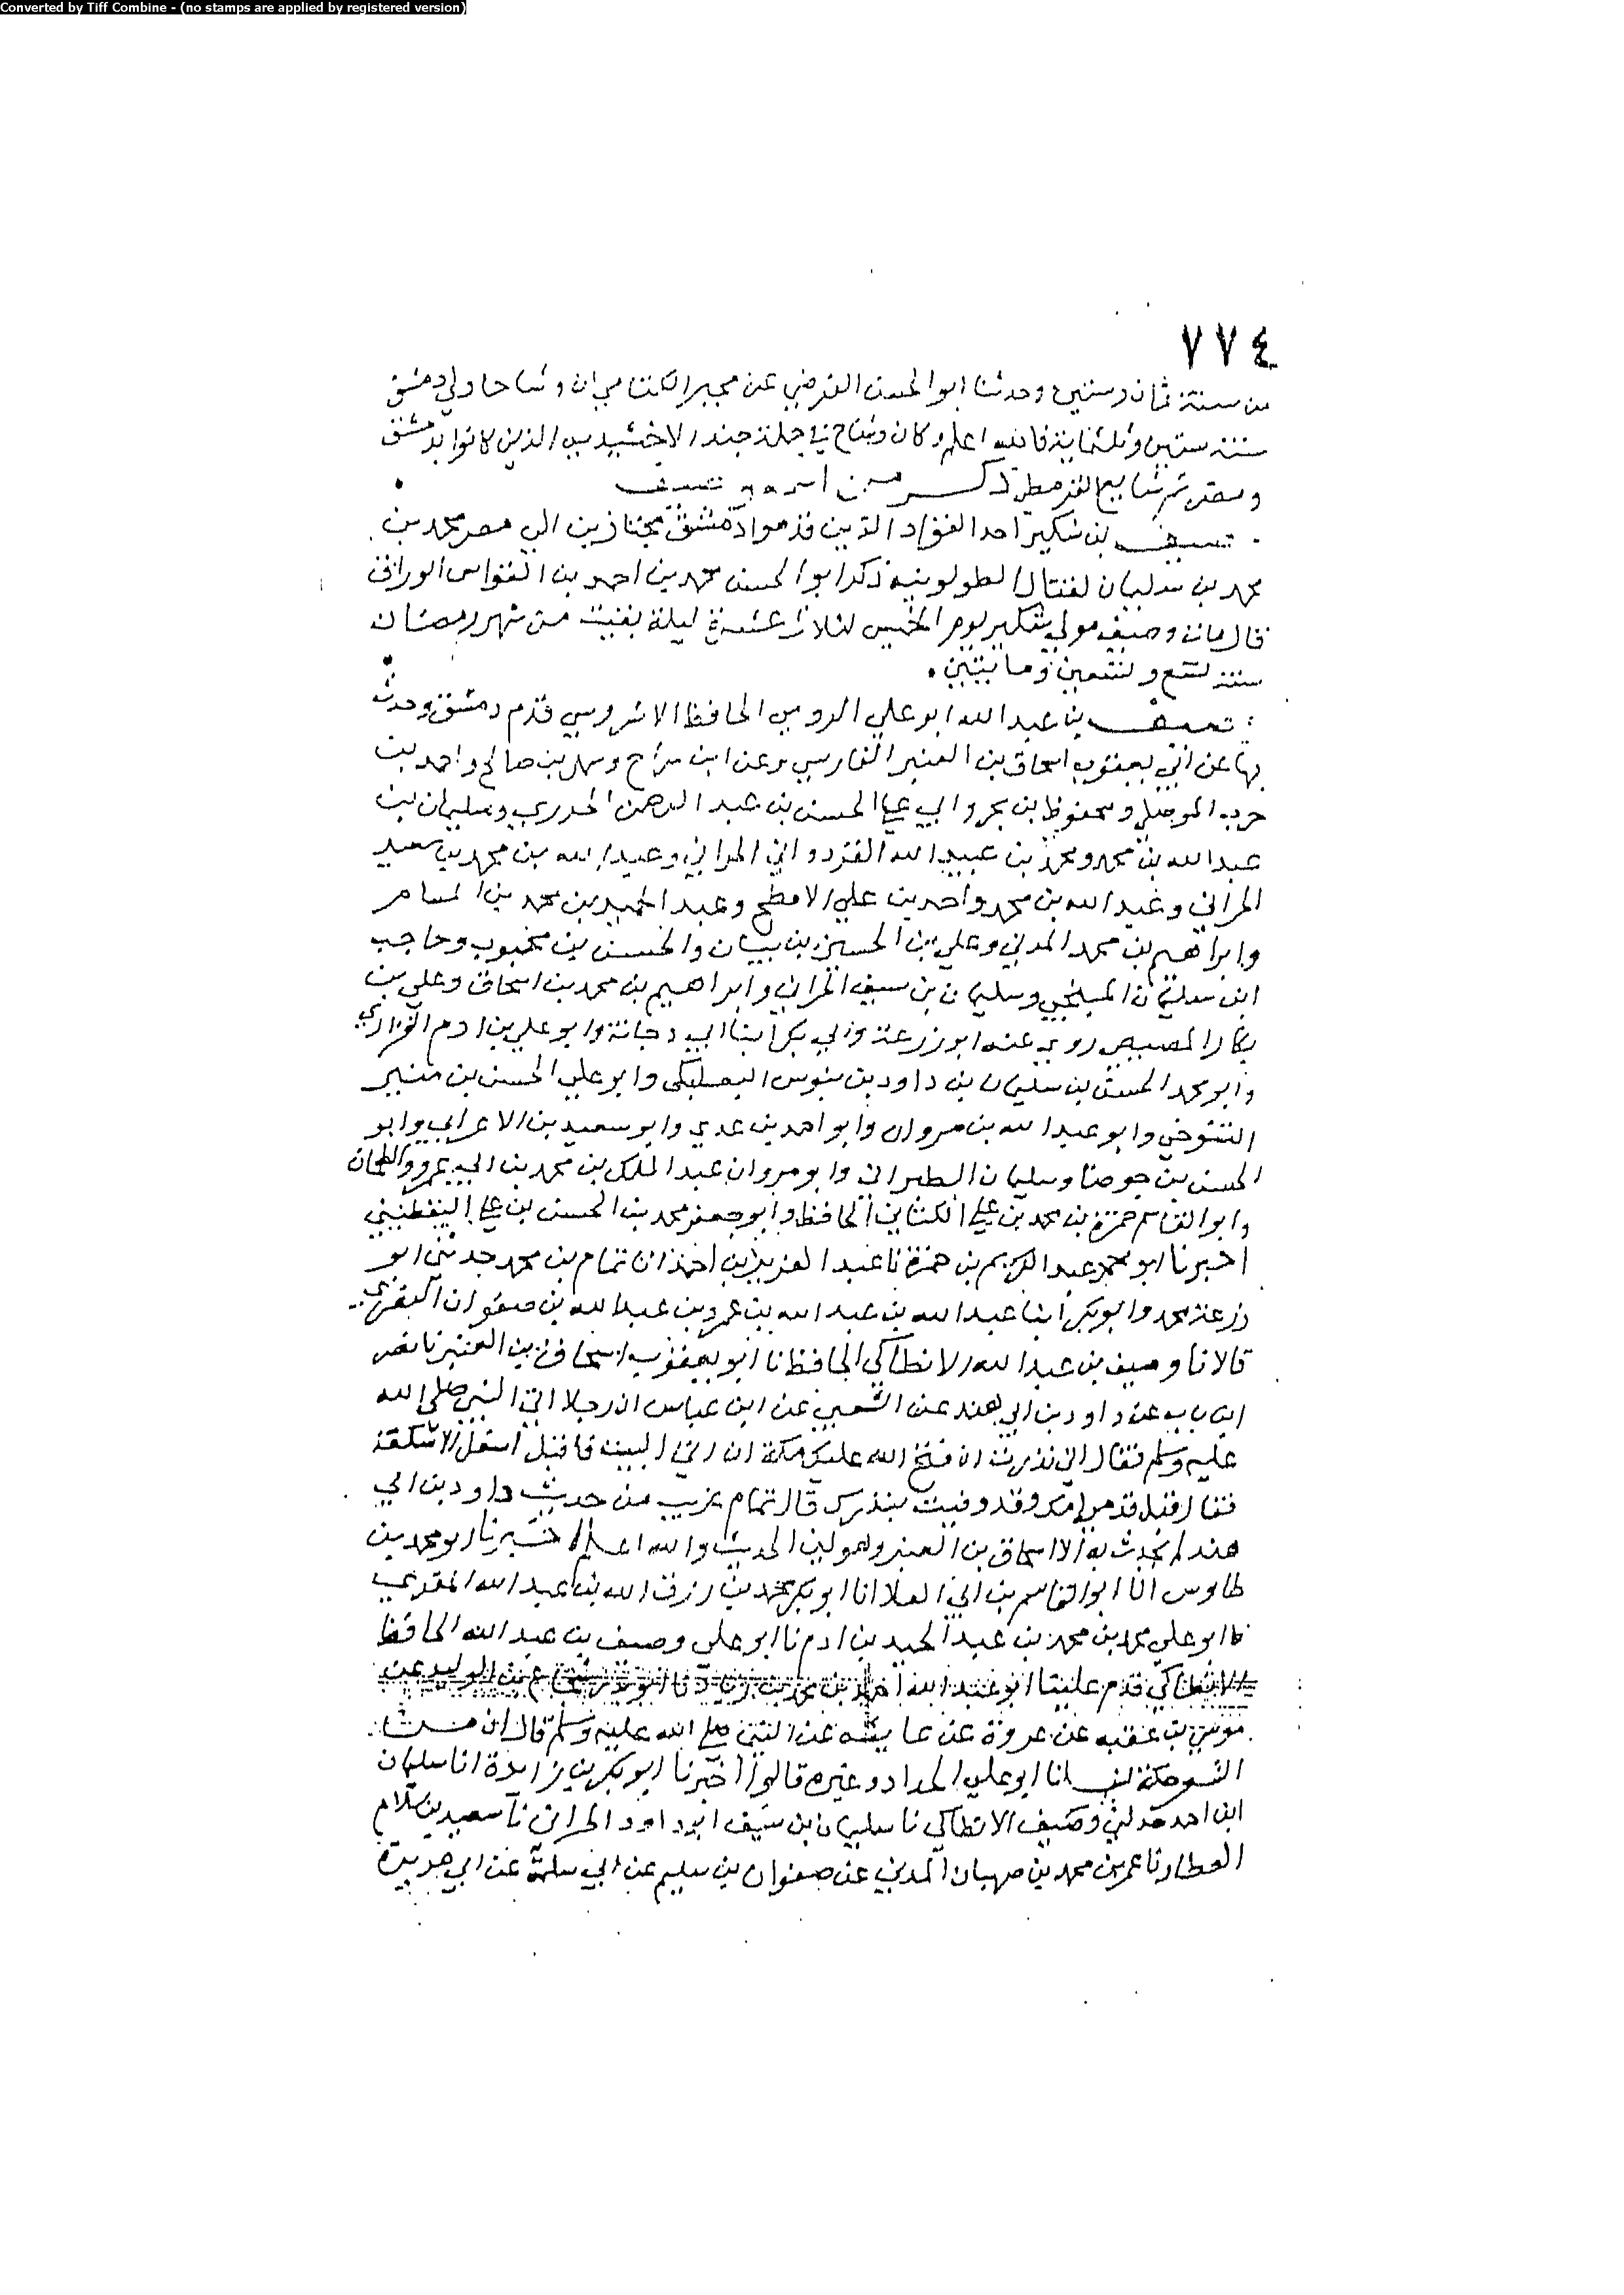 Converted by Tiff Combine - (no stamps are applied by registered version)
٧٧٤
من سنة ثمان وستين وحدثنا ابو الحسن الفرضي عن مجبر الكتامي ان وشاحا ولي دمشق
سنة ستين وثلثماية فالله اعلم وكان وشاح في جملة جند الاخشيدية الذين كانوا بدمشق
ومصر ثم شايع القرمطي ذكر من اسمه وصيف
وصيف بن شكير احد القواد الذين قدموا دمشق مجتازين الى مصر محمد بن
محمد بن سليمان لقتال الطولونية ذكر ابو الحسن محمد بن احمد بن القواس الوراق
قال مات وصيف مولى شكير يوم الخميس لثلاث عشرة ليلة بقيت من شهر رمضان
سنة تسع وتسعين ومايتين .
وصيف بن عبد الله ابو علي الرومي الحافظ الاشروسي قدم دمشق وحدث
بها عن ابي يعقوب اسحاق بن العنبر الفارسي وعن ابن سراج وسهل بن صالح واحمد بن
حرب الموصلي ومحفوظ بن بحر وابي علي الحسن بن عبد الرحمن الجدري وسليمان بن
عبد الله بن محمد ومحمد بن عبيد الله القردواني الحراني وعبد الله بن محمد بن سعيد
الحراني وعبد الله بن محمد واحمد بن علي الافطح وعبد الحميد بن محمد بن المسام
وابراهيم بن محمد المدني وعلي بن الحسين بن بيان والحسن بن محبوب وحاجب
ابن سليمان المنبجي وسليمان بن سيف الحراني وابراهيم بن محمد بن اسحاق وعلي بن
بكار المصيصي روى عنه ابو زرعة وابي بكر ابنا ابي دجانة وابو علي بن ادم الفزاري
وابو محمد الحسن بن سليمان بن داود بن بنوس البعلبكي وابو علي الحسن بن منير
التنوخي وابو عبد الله بن مروان وابو احمد بن عدي وابو سعيد بن الاعرابي وابو
الحسن بن جوصا وسليمان الطبراني وابو مروان عبد الملك بن محمد بن ابي عمرو الطحان
وابو القاسم حمزة بن محمد بن علي الكناني الحافظ وابو جعفر محمد بن الحسن بن علي اليقطيني
اخبرنا ابو محمد عبد الكريم بن حمزة نا عبد العزيز بن احمد انا تمام بن محمد حدثني ابو
زرعة محمد وابو بكر ابنا عبد الله بن عبد الله بن عمرو بن عبد الله بن صفوان
قالا نا وصيف بن عبد الله الانطاكي الحافظ نا ابو يعقوب اسحاق بن العنبر نا نصر
ابن باب عن داود بن ابي هند عن الشعبي عن ابن عباس ان رجلا اتى النبي صلى الله
عليه وسلم فقال اني نذرت ان فتح الله عليك مكة ان اتي البيت فاقبل اسفل الاسكفة
فقال قبل قدمي امك وقد وفيت بنذرك قال تمام غريب من حديث داود بن ابي
هند لم يحدث به الا اسحاق بن العنبر وهو لين الحديث والله اعلم اخبرنا ابو محمد بن
طاوس انا ابو القاسم بن ابي العلا انا ابو بكر محمد بن رزق الله بن عبد الله المقري
نا ابو علي محمد بن محمد بن عبد الحميد بن ادم نا ابو علي وصيف بن عبد الله الحافظ
الانطاكي قدم علينا ابو عبد الله احمد بن محمد بن زياد نا ابو بدر شجاع بن الوليد عن
موسى بن عقبه عن عروة عن عايشه عن النبي صلى الله عليه وسلم قال ان
انا ابو علي الحداد وغيره قالوا اخبرنا ابو بكر بن زايدة انا سليمان
ابن احمد وصيف الانطاكي نا سليمان بن سيف ابو داود الحراني نا سعيد بن سلام
العطار نا عمر بن محمد بن صهبان المدني عن صفوان بن سليم عن ابي سلمة عن ابي هريرة